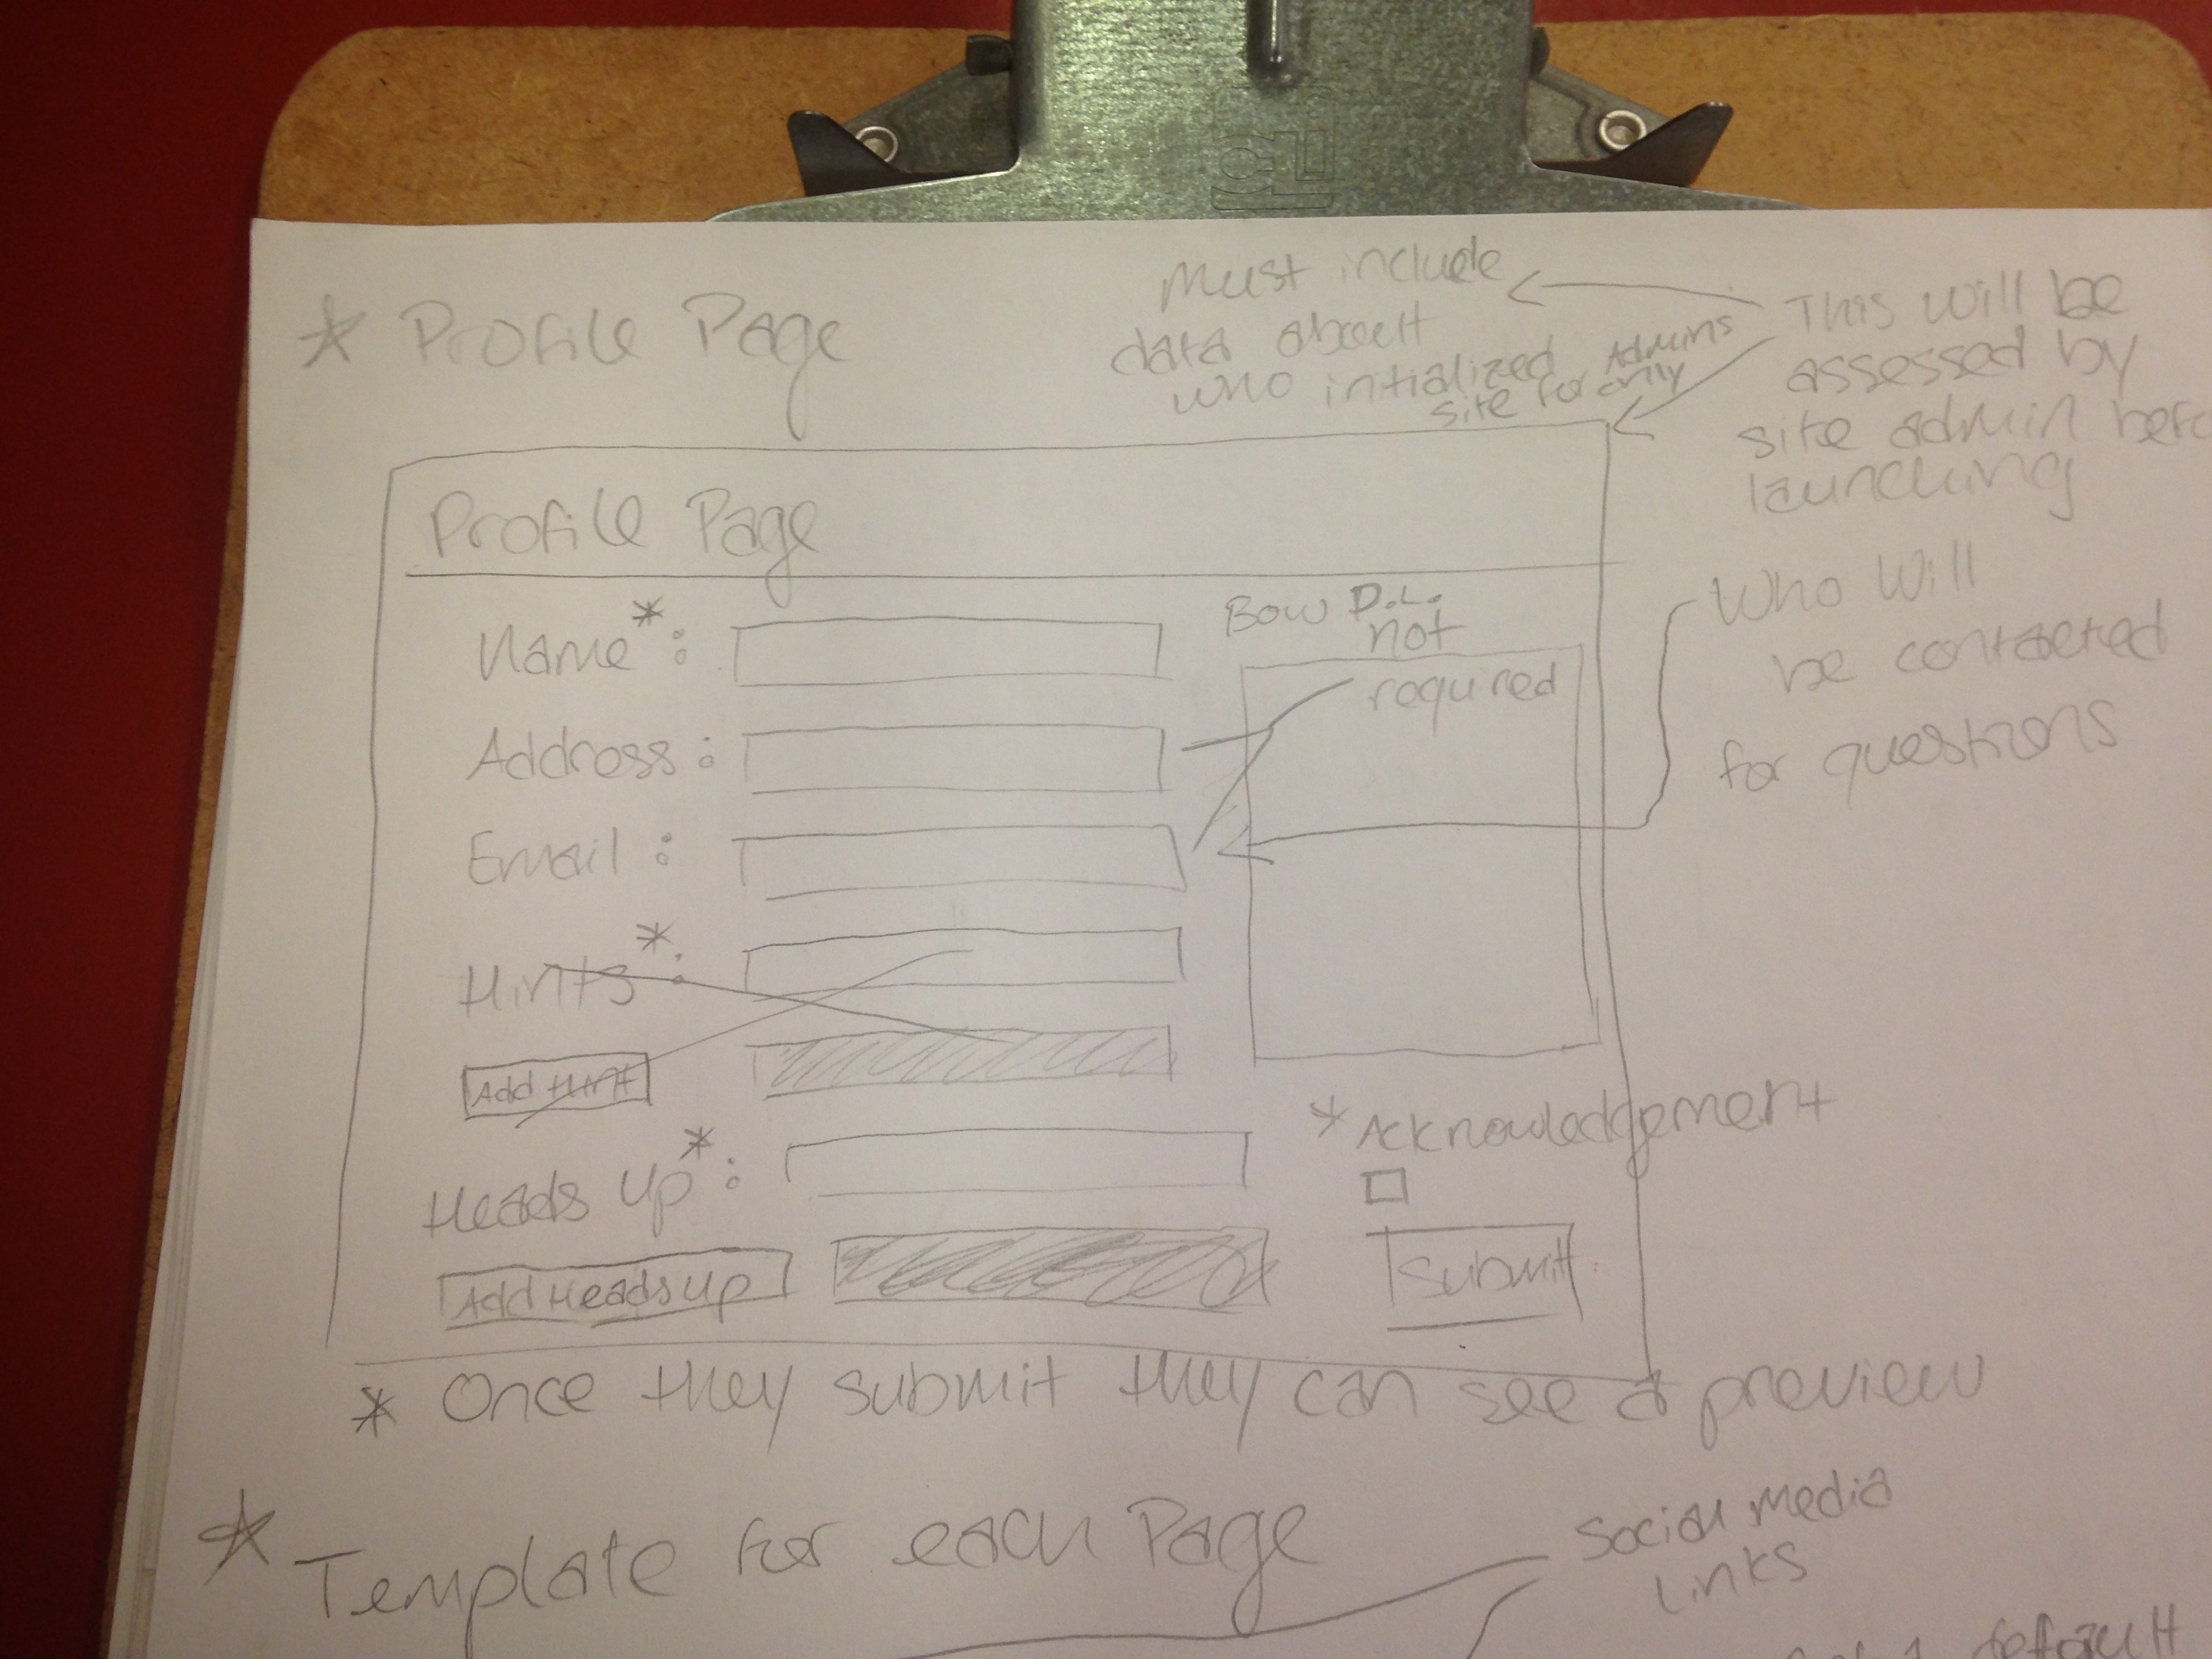 * Profile Page
Must include
data about
who initialized
site for Admins
only
This will be
assessed by
site admin
launching
Profile Page
Name*:
Address:
Email:
Hints*:
Add Hint
Heads Up*:
Add Heads Up
D.L.
not
required
Who Will
be contacted
for questions
* Acknowledgement
Submit
* Once they submit they can see a preview
* Template for each Page
Social media
Links
default